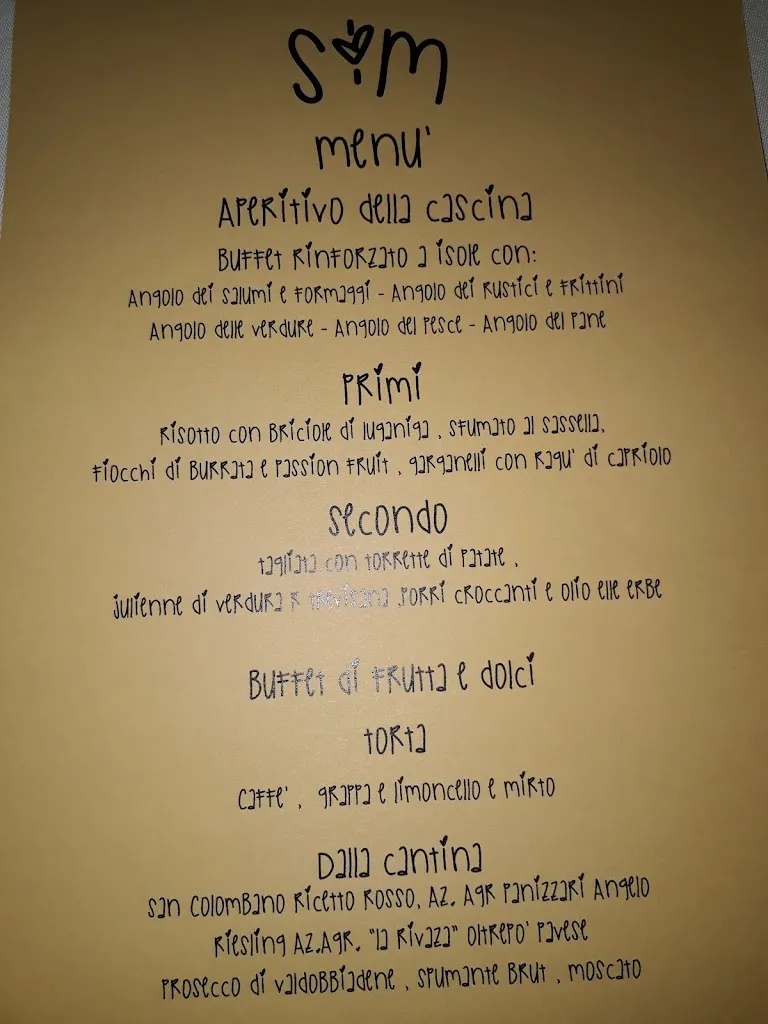 S M
menu'
Aperitivo della cascina
Buffet rinforzato a isole con:
Angolo dei salumi e formaggi - Angolo dei rustici e frittini
Angolo delle verdure - Angolo del pesce - Angolo del pane
Primi
Risotto con briciole di luganiga , sfumato al sassella,
fiocchi di burrata e passion fruit , garganelli con ragu' di capriolo
secondo
tagliata con torrette di patate ,
julienne di verdura R trevisana ,porri croccanti e olio elle erbe
Buffet di frutta e dolci
torta
caffe' , grappa e limoncello e mirto
Dalla cantina
San Colombano Ricetto Rosso, AZ. Agr Panizzari Angelo
Riesling AZ.Agr. "la Rivaza" Oltrepo' Pavese
Prosecco di valdobbiadene , spumante Brut , moscato